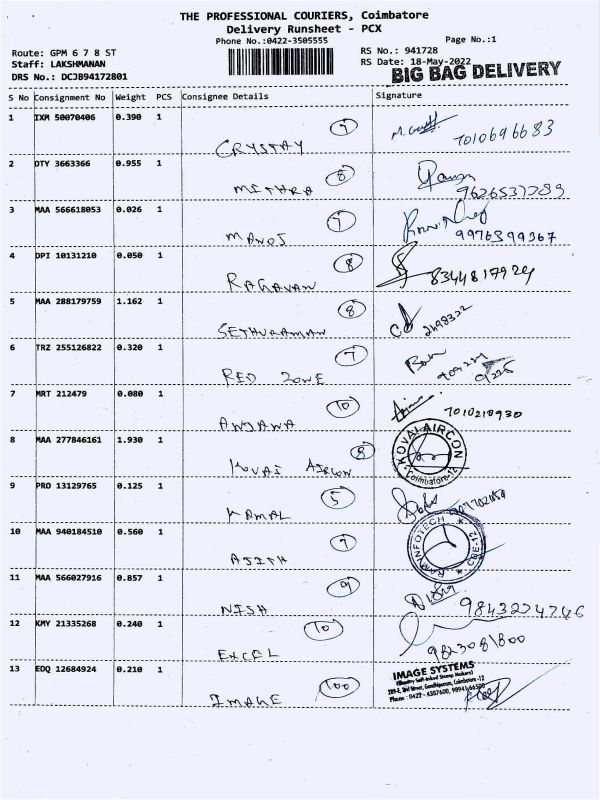 THE PROFESSIONAL COURIERS, Coimbatore
Delivery Runsheet - PCX
Phone No.:0422-3505555
Page No.:1
Route: GPM 6 7 8 ST
RS No.: 941728
Staff: LAKSHMANAN
RS Date: 18-May-2022
DRS No.: DCJB94172801
BIG BAG DELIVERY
S No Consignment No Weight PCS Consignee Details Signature
1 IXM 50070406 0.390 1
CRYSTAY 7010696683
2 DTY 3663366 0.955 1 8
MITHRA
3 MAA 566618053 0.026 1
MANOJ 9976399367
4 DPI 10131210 0.050 1 8
RAGAVAN 8344817924
5 MAA 288179759 1.162 1 8
SETHURAMAN
6 TRZ 255126822 0.320 1 7
RED ZONE
7 MRT 212479 0.080 1 10
ANJANA 7010210930
8 MAA 277846161 1.930 1 8
KOVAI AIRCON
KOVAI AIRCON
Coimbatore-12
9 PRO 13129765 0.125 1 5
KAMAL
10 MAA 940184510 0.560 1
AJITH
INFOTECH
CBE-12
11 MAA 566027916 0.857 1 9
NISH 9843224746
12 KMY 21335268 0.240 1 10
EXCEL 9823081800
13 EDQ 12684924 0.210 1 100
IMAGE
IMAGE SYSTEMS